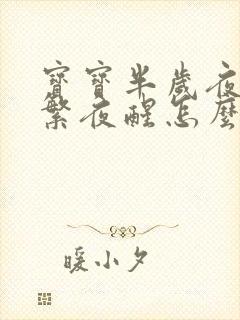 寶寶半歲夜
繁夜醒怎麼
暖小夕